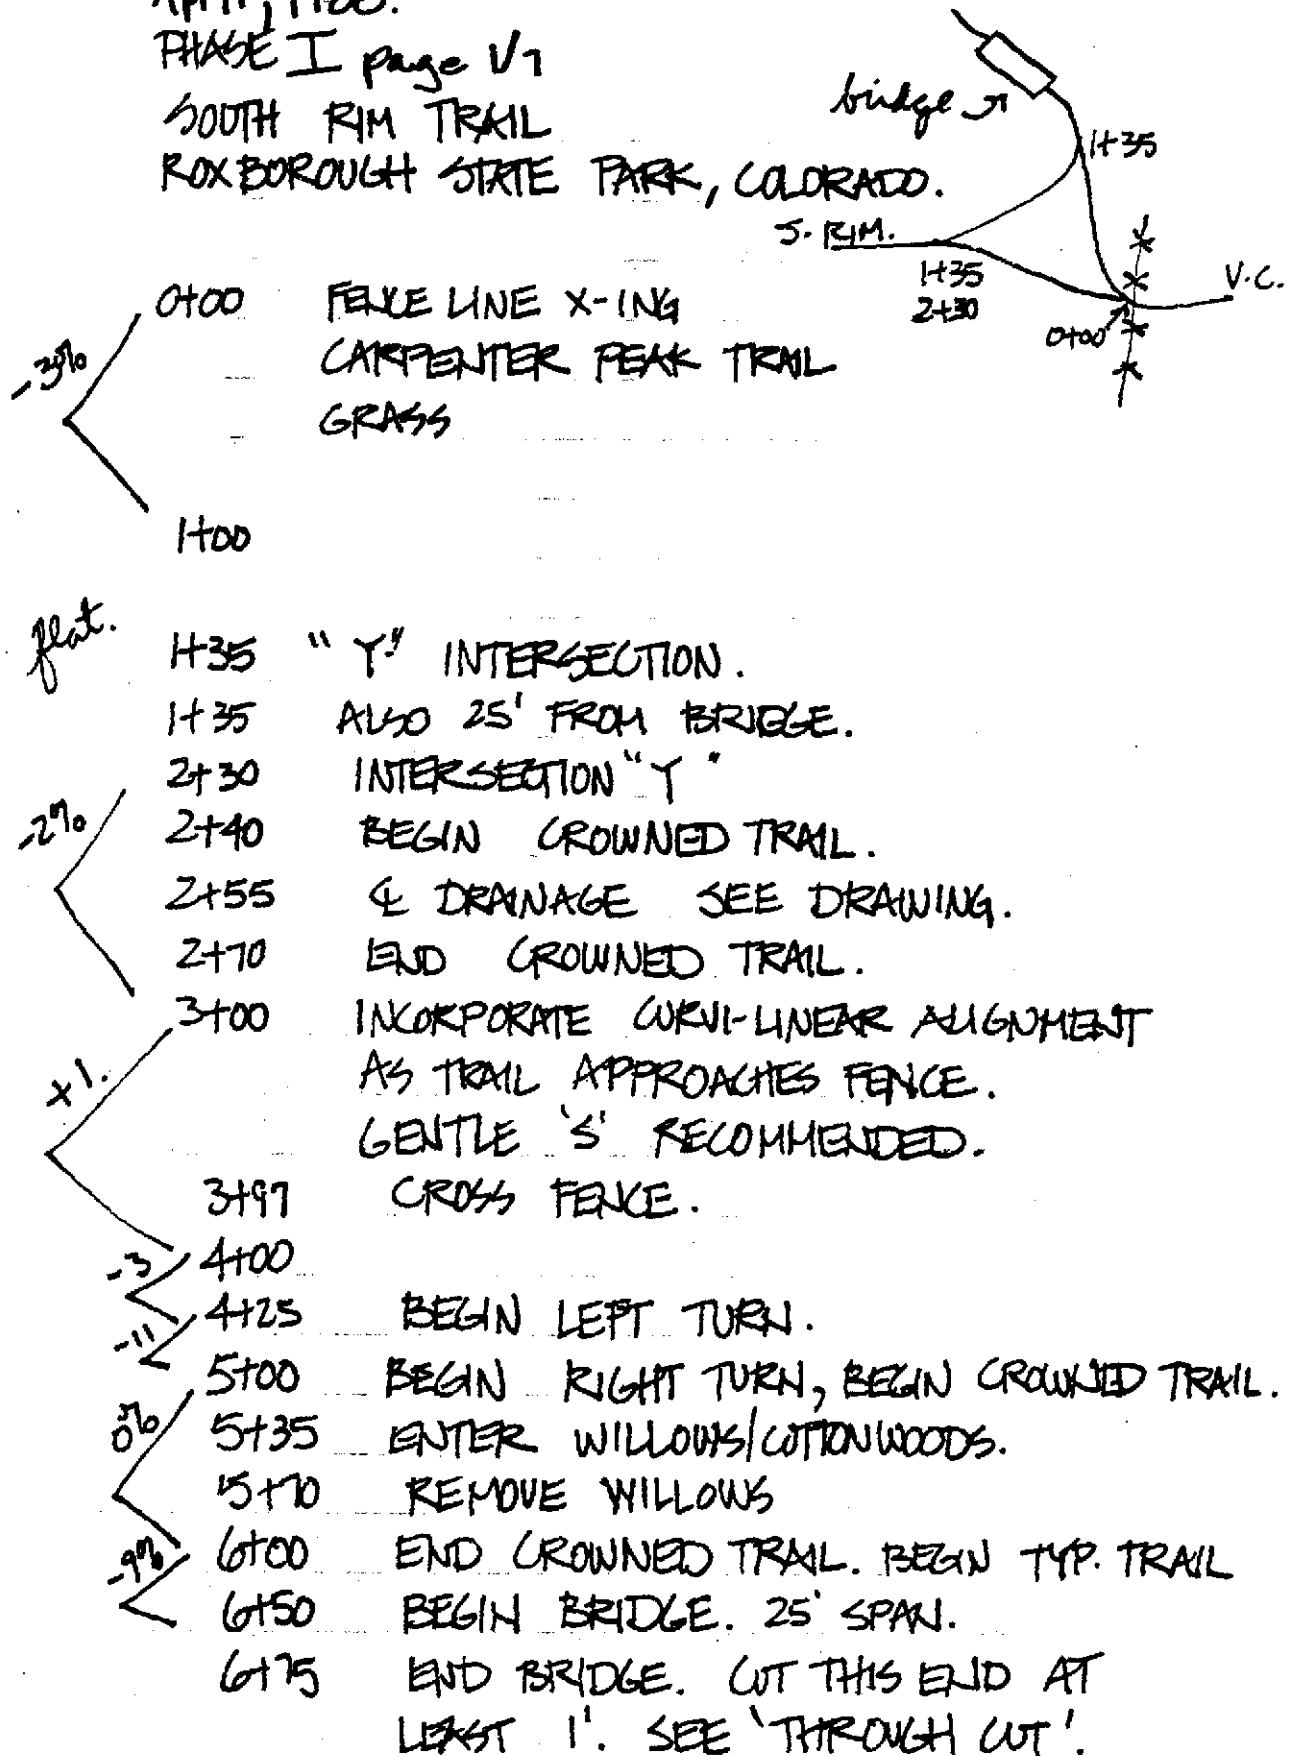 PHASE I page 1/7
SOUTH RIM TRAIL
ROXBOROUGH STATE PARK, COLORADO.
bridge
1+35
S. RIM.
1+35
2+30
V.C.
0+00
-3%
0+00 FENCE LINE X-ING
CARPENTER PEAK TRAIL
GRASS
1+00
flat.
1+35 "Y" INTERSECTION.
1+35 ALSO 25' FROM BRIDGE.
2+30 INTERSECTION "Y"
-2%
2+40 BEGIN CROWNED TRAIL.
2+55 ℄ DRAINAGE SEE DRAWING.
2+70 END CROWNED TRAIL.
3+00 INCORPORATE CURVI-LINEAR ALIGNMENT
+1.
AS TRAIL APPROACHES FENCE.
GENTLE 'S' RECOMMENDED.
3+97 CROSS FENCE.
-3
4+00
4+25 BEGIN LEFT TURN.
-11
5+00 BEGIN RIGHT TURN, BEGIN CROWNED TRAIL.
0%
5+35 ENTER WILLOWS/COTTONWOODS.
5+70 REMOVE WILLOWS
-9%
6+00 END CROWNED TRAIL. BEGIN TYP. TRAIL
6+50 BEGIN BRIDGE. 25' SPAN.
6+75 END BRIDGE. CUT THIS END AT
LEAST 1'. SEE 'THROUGH CUT'.